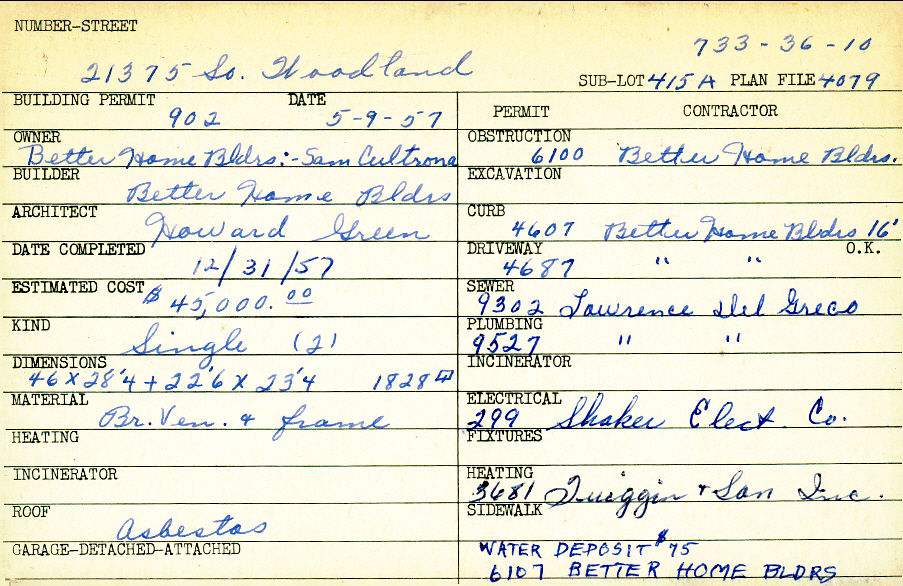 NUMBER-STREET
733-36-10
21375 So. Woodland
SUB-LOT 415A PLAN FILE 4079
BUILDING PERMIT DATE
902 5-9-57
OWNER
Better Home Bldrs:-Sam Cultrona
BUILDER
Better Home Bldrs
ARCHITECT
Howard Green
DATE COMPLETED
12/31/57
ESTIMATED COST
$45,000.00
KIND
Single (2)
DIMENSIONS
46 x 28'4 + 22'6 x 23'4 1828
MATERIAL
Br. Ven. & frame
HEATING
INCINERATOR
ROOF
Asbestos
GARAGE-DETACHED-ATTACHED
PERMIT CONTRACTOR
OBSTRUCTION
6100 Better Home Bldrs.
EXCAVATION
CURB
4607 Better Home Bldrs 16'
DRIVEWAY O.K.
4687 " "
SEWER
9302 Lawrence Del Greco
PLUMBING
9527 " "
INCINERATOR
ELECTRICAL
299 Shaker Elect. Co.
FIXTURES
HEATING
3681 Quiggin & Son Inc.
SIDEWALK
WATER DEPOSIT $75
6107 BETTER HOME BLDRS